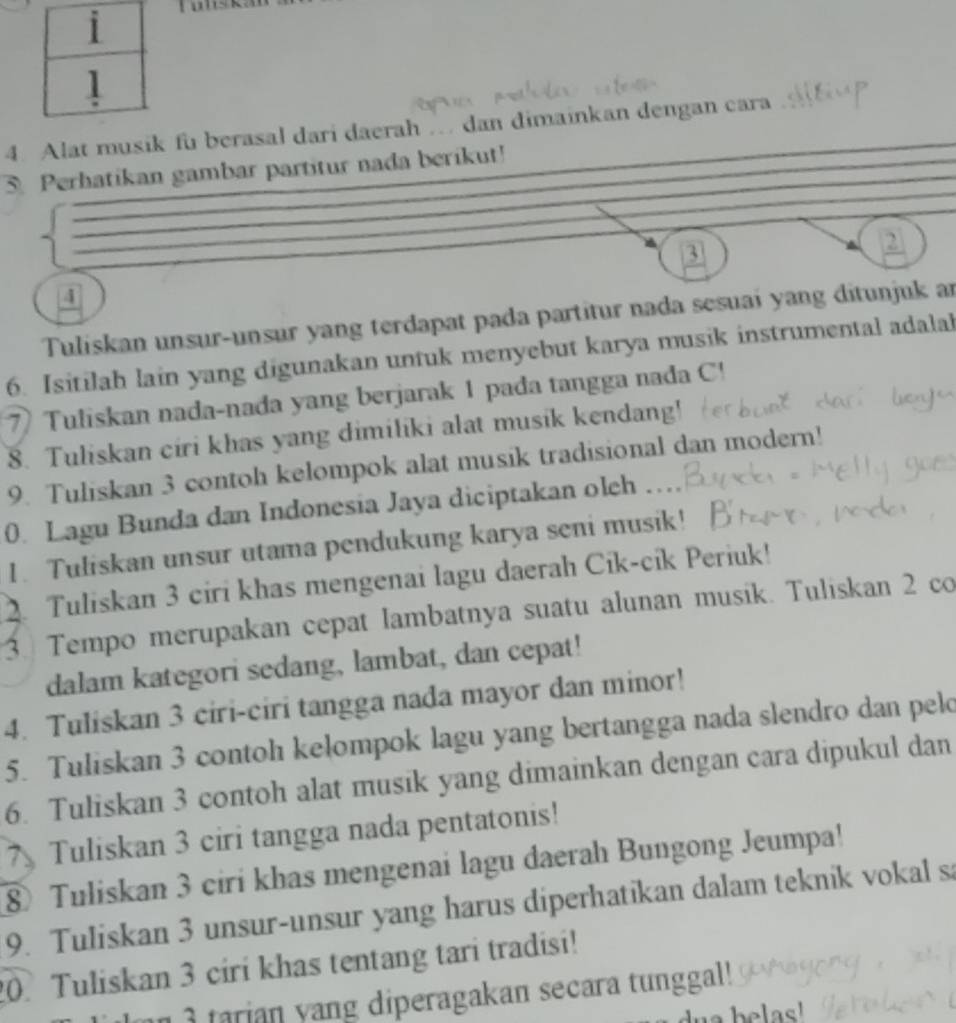 i
1
4. Alat musik fu berasal dari daerah ... dan dimainkan dengan cara
5. Perhatikan gambar partitur nada berikut!
3
2
4
Tuliskan unsur-unsur yang terdapat pada partitur nada sesuai yang ditunjuk ar
6. Isitilah lain yang digunakan untuk menyebut karya musik instrumental adalah
7) Tuliskan nada-nada yang berjarak 1 pada tangga nada C!
8. Tuliskan ciri khas yang dimiliki alat musik kendang! terbuat dari
9. Tuliskan 3 contoh kelompok alat musik tradisional dan modern!
0. Lagu Bunda dan Indonesia Jaya diciptakan oleh ....
1. Tuliskan unsur utama pendukung karya seni musik!
2. Tuliskan 3 ciri khas mengenai lagu daerah Cik-cik Periuk!
3 Tempo merupakan cepat lambatnya suatu alunan musik. Tuliskan 2 co
dalam kategori sedang, lambat, dan cepat!
4. Tuliskan 3 ciri-ciri tangga nada mayor dan minor!
5. Tuliskan 3 contoh kelompok lagu yang bertangga nada slendro dan pelo
6. Tuliskan 3 contoh alat musik yang dimainkan dengan cara dipukul dan
7 Tuliskan 3 ciri tangga nada pentatonis!
8 Tuliskan 3 ciri khas mengenai lagu daerah Bungong Jeumpa!
9. Tuliskan 3 unsur-unsur yang harus diperhatikan dalam teknik vokal sa
20. Tuliskan 3 ciri khas tentang tari tradisi!
3 tarian yang diperagakan secara tunggal!
dua belas!